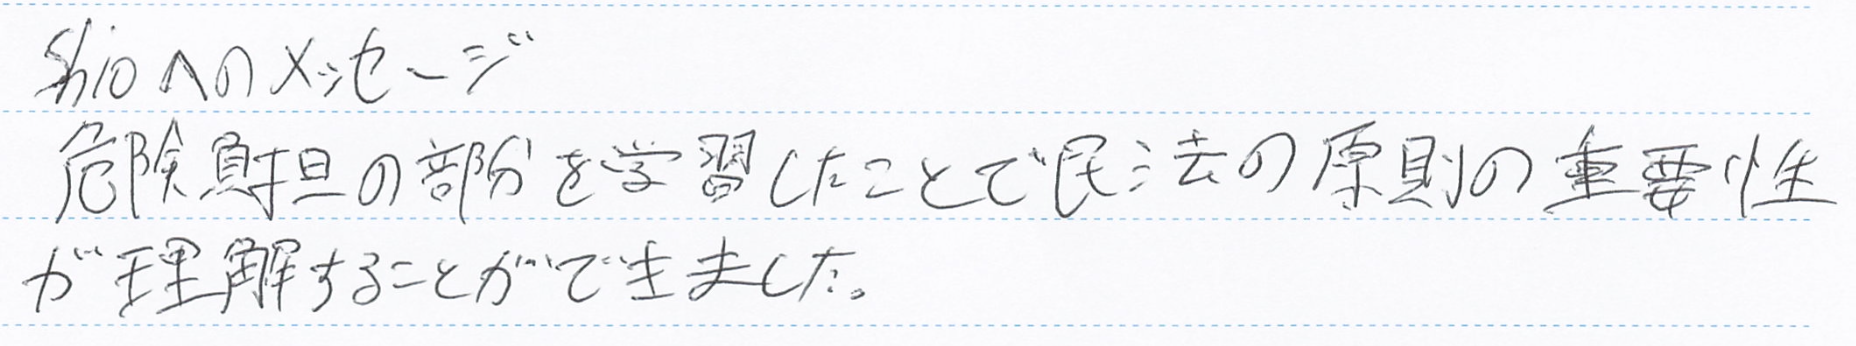 Shioへのメッセージ
危険負担の部分を学習したことで民法の原則の重要性
が理解することができました。